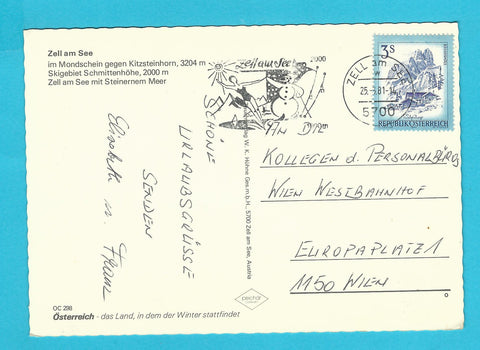 Zell am See
im Mondschein gegen Kitzsteinhorn, 3204 m
Skigebiet Schmittenhöhe, 2000 m
Zell am See mit Steinernem Meer
SCHÖNE
URLAUBSGRÜSSE
SENDEN
Elisabeth u. Franz
Verlag W. K. Höhne Ges.m.b.H., 5700 Zell am See, Austria
zell am See
2000
ZELL am SEE
5700
3S
REPUBLIK ÖSTERREICH
AN DIE
KOLLEGEN d. PERSONALBÜROS
WIEN WESTBAHNHOF
EUROPAPLATZ 1
1150 WIEN
OC 298
Österreich - das Land, in dem der Winter stattfindet